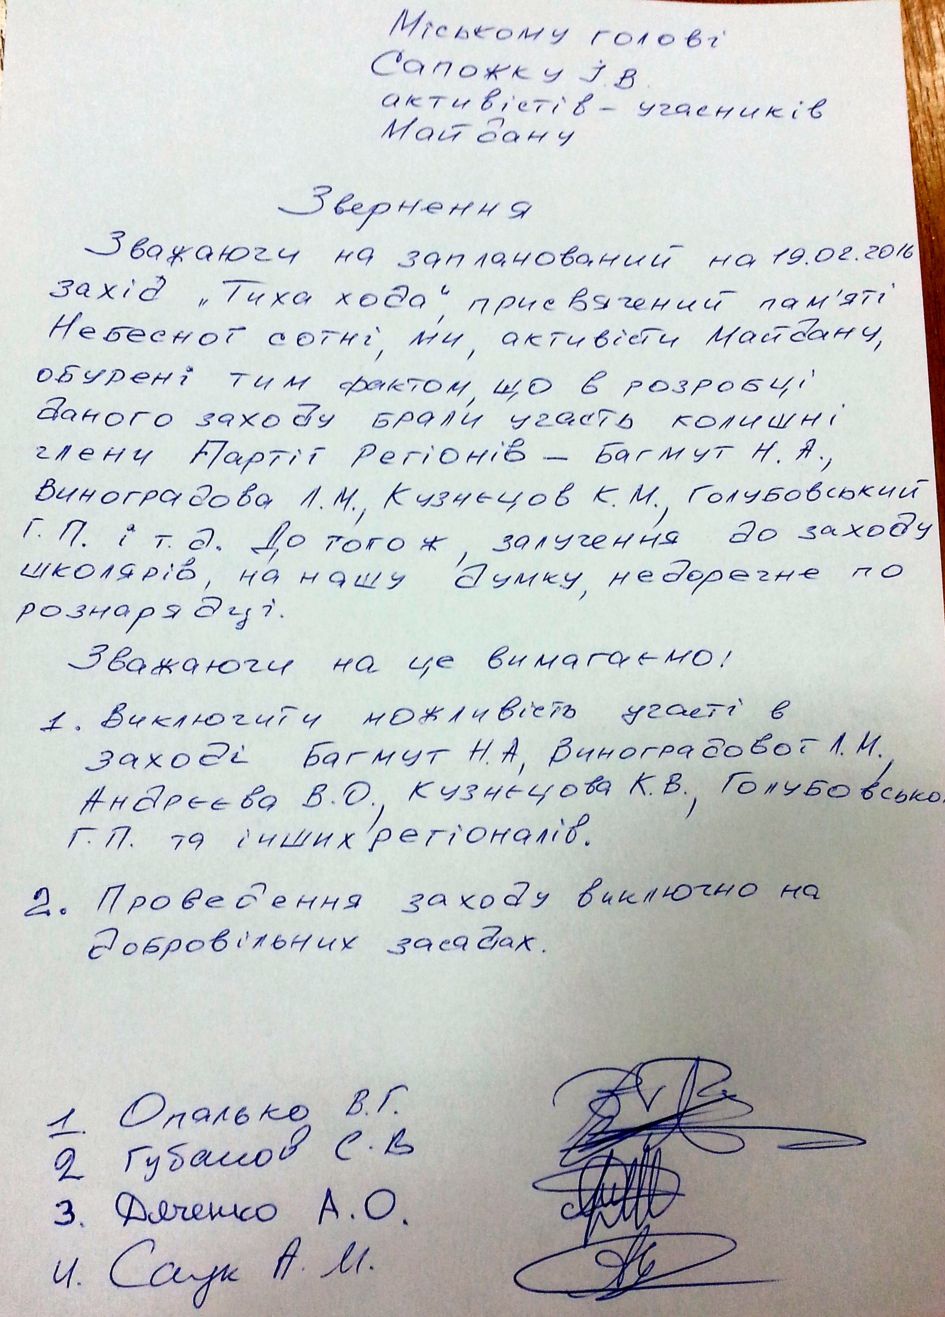 Міському голові
Сапожку І.В.
активістів – учасників
Майдану
Звернення
Зважаючи на запланований на 19.02.2016
захід „Тиха хода“, присвячений пам'яті
Небесної сотні, ми, активісти Майдану,
обурені тим фактом, що в розробці
даного заходу брали участь колишні
члени Партії Регіонів – Багмут Н.А.,
Виноградова Л.М., Кузнєцов К.М., Голубовський
Г.П. і т.д. До того ж, залучення до заходу
школярів, на нашу думку, недоречне по
рознарядці.
Зважаючи на це вимагаємо!
1. Виключити можливість участі в
заході Багмут Н.А, Виноградової Л.М.,
Андрєєва В.О., Кузнєцова К.В., Голубовсько
Г.П. та інших регіоналів.
2. Проведення заходу виключно на
добровільних засадах.
1. Опалько В.Г.
2 Губанов С.В
3. Дяченко А.О.
4. Саук А.М.